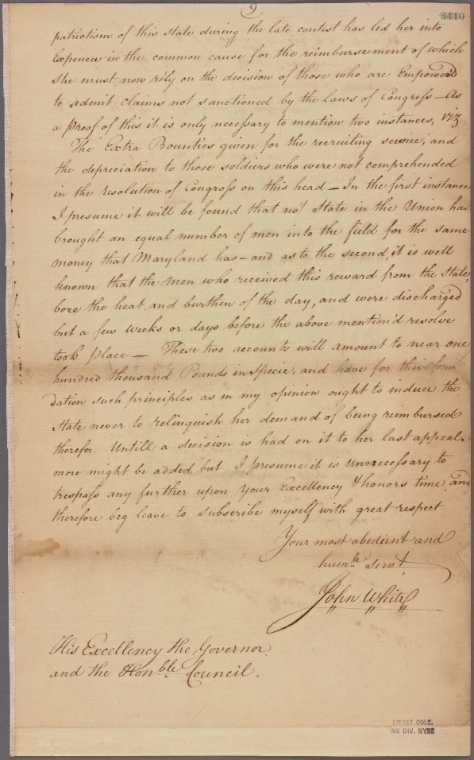 9
8410
patriotism of this State during the late contest has led her into
Expences in the common cause for the reimbursement of which
she must now rely on the decision of those who are Empowered
to admit claims not sanctioned by the laws of Congress — As
a proof of this it is only necessary to mention two instances, viz
The Extra Bounties given for the recruiting service, and
the depreciation to those soldiers who were not comprehended
in the resolution of Congress on this head — In the first instance
I presume it will be found that no State in the Union has
brought an equal number of men into the field for the same
money that Maryland has — and as to the second, it is well
known that the men who received this reward from the State,
bore the heat, and burthen of the day, and were discharged
but a few weeks or days before the above mention'd resolve
took place — These two accounts will amount to near one
hundred thousand Pounds in Specie, and have for their foun
dation such principles as in my opinion ought to induce the
State never to relinquish her demand of being reimbursed
therefor. Untill a decision is had on it to her last appeal.
more might be added but I presume it is unnecessary to
trespass any further upon Your Excellency & honors time, and
therefore beg leave to subscribe myself with great respect
Your most obedient and
humble servt
John White
His Excellency the Governor
and the Honble Council.
EMMET COLL.
MS DIV. NYPL